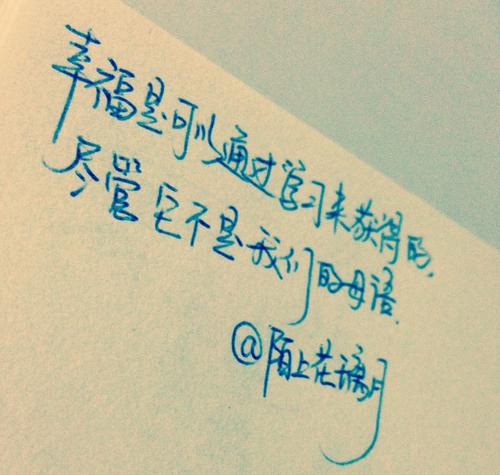 幸福是可以通过学习来获得的,
尽管它不是我们的母语.
@陌上花漓月